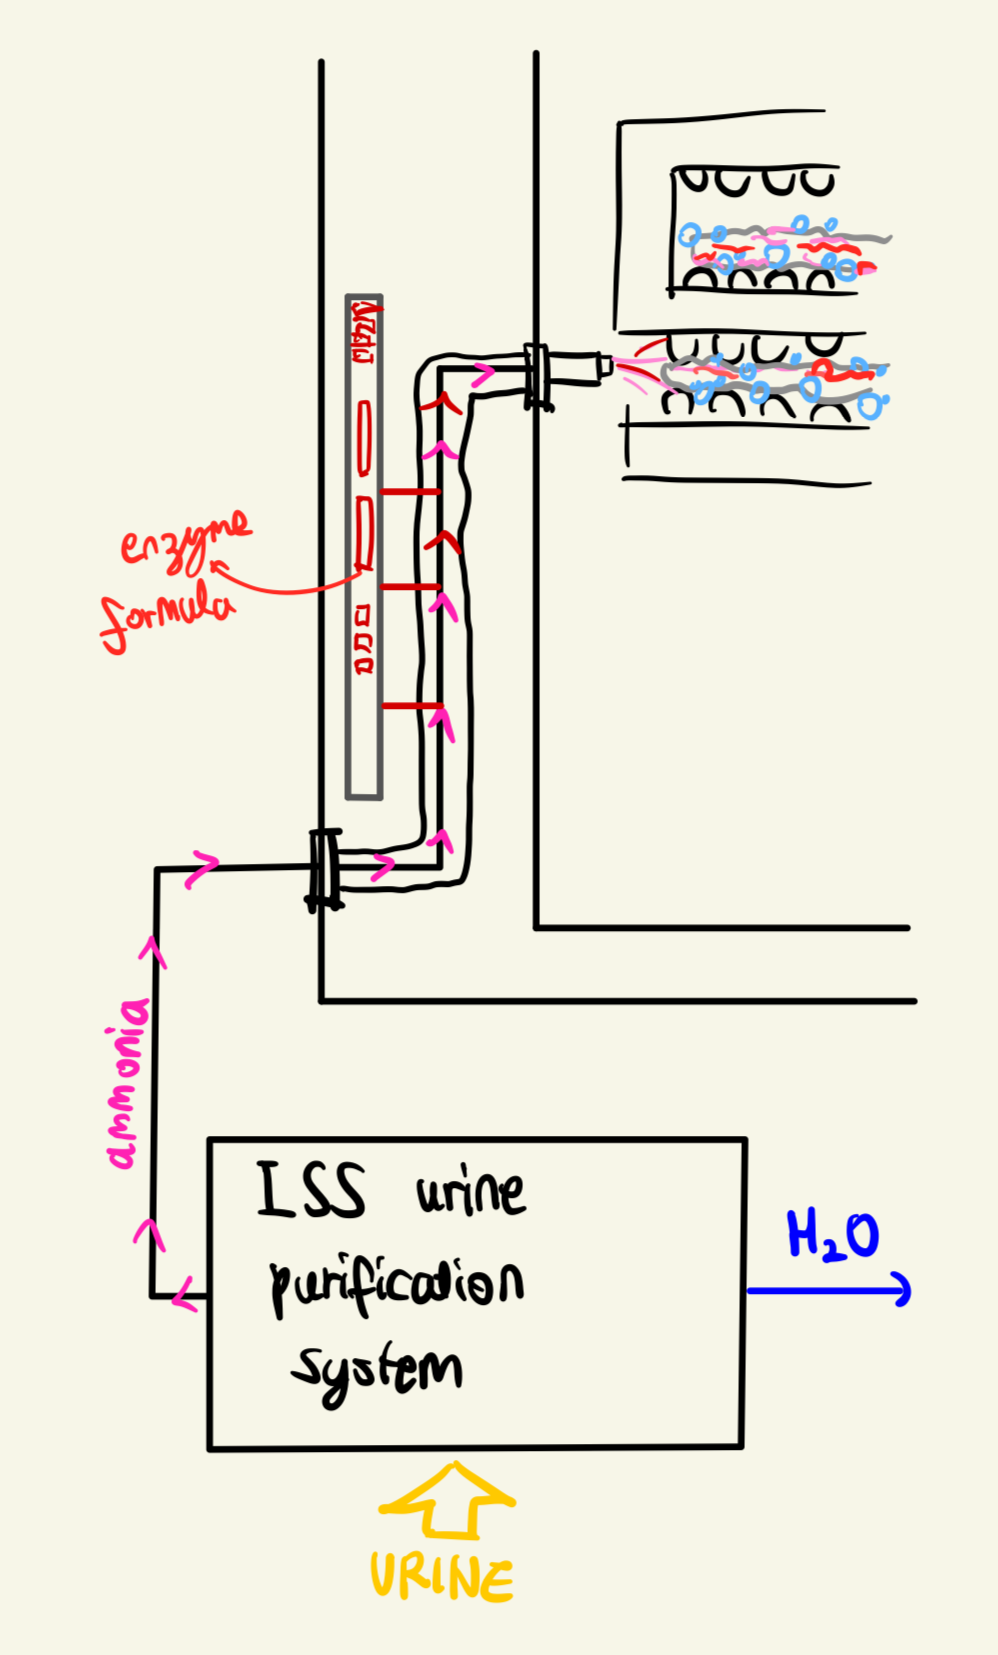 enzyme
formula
ammonia
ISS urine
purification
system
H₂O
URINE